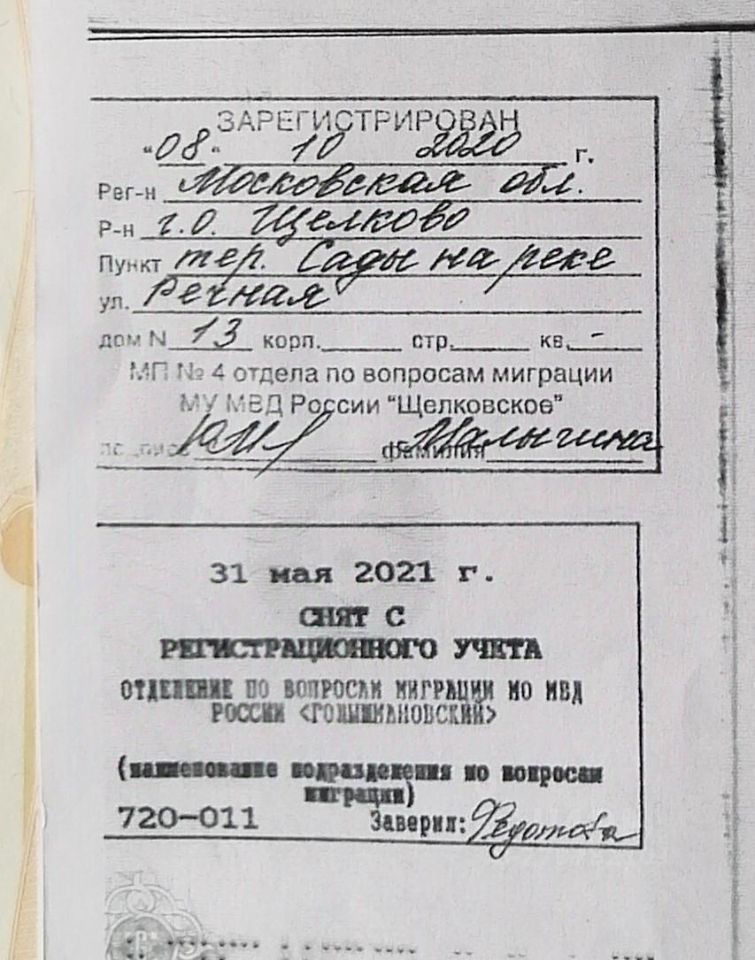 ЗАРЕГИСТРИРОВАН
"08" 10 2020 г.
Рег-н Московская обл.
Р-н г.о. Щелково
Пункт тер. Сады на реке
ул. Речная
дом N 13 корп. стр. кв. -
МП № 4 отдела по вопросам миграции
МУ МВД России "Щелковское"
подпись фамилия Малыгина
31 мая 2021 г.
СНЯТ С
РЕГИСТРАЦИОННОГО УЧЕТА
ОТДЕЛЕНИЕ ПО ВОПРОСАМ МИГРАЦИИ МО МВД
РОССИИ <ГОЛЫШМАНОВСКИЙ>
(наименование подразделения по вопросам
миграции)
720-011 Заверил: Федотова